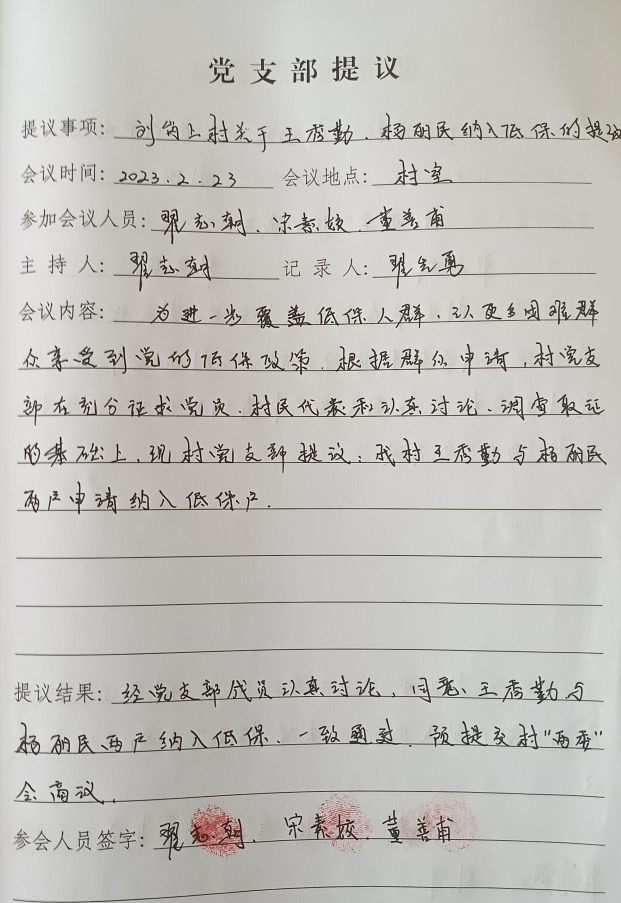 党支部提议
提议事项：刘苟上村关于王秀勤、杨丽民纳入低保的提议
会议时间：2023.2.23 会议地点：村室
参加会议人员：翟志朝、宋素姣、董善甫
主持人：翟志朝 记录人：翟先勇
会议内容：为进一步覆盖低保人群，以更多困难群
众享受到党的低保政策，根据群众申请，村党支
部在充分征求党员、村民代表和认真讨论、调查取证
的基础上，现村党支部提议：我村王秀勤与杨丽民
两户申请纳入低保户.
提议结果：经党支部成员认真讨论，同意王秀勤与
杨丽民两户纳入低保，一致通过，预提交村"两委"
会商议.
参会人员签字：翟志朝、宋素姣、董善甫